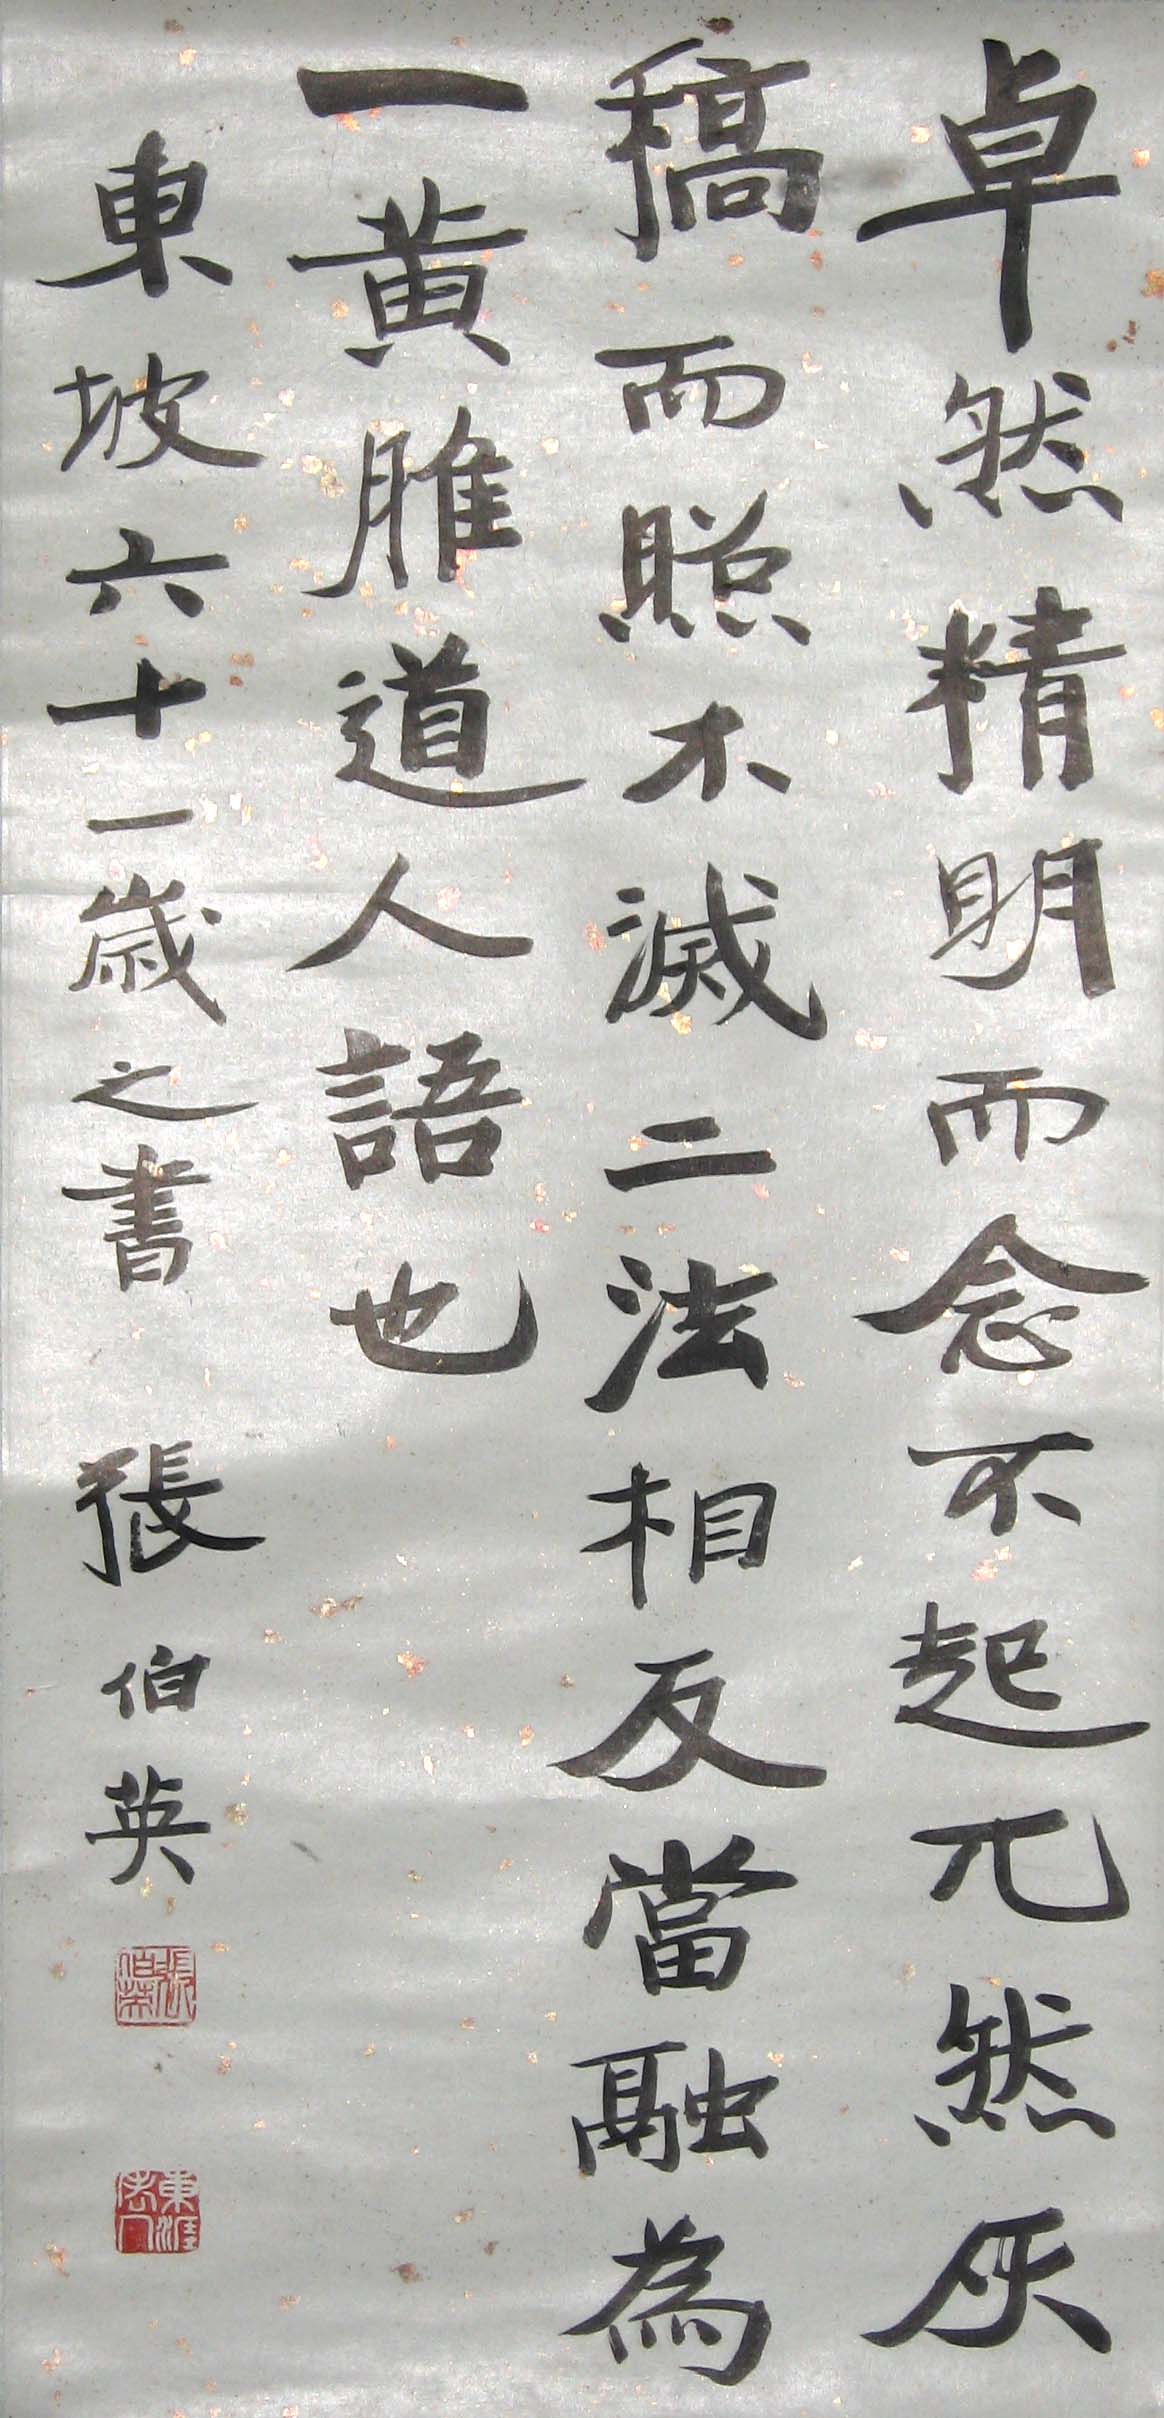 卓然精明而念不起兀然灰
槁而照不滅二法相反當融為
一黃脽道人語也
東坡六十一歲之書 張伯英
張伯英
東涯老人